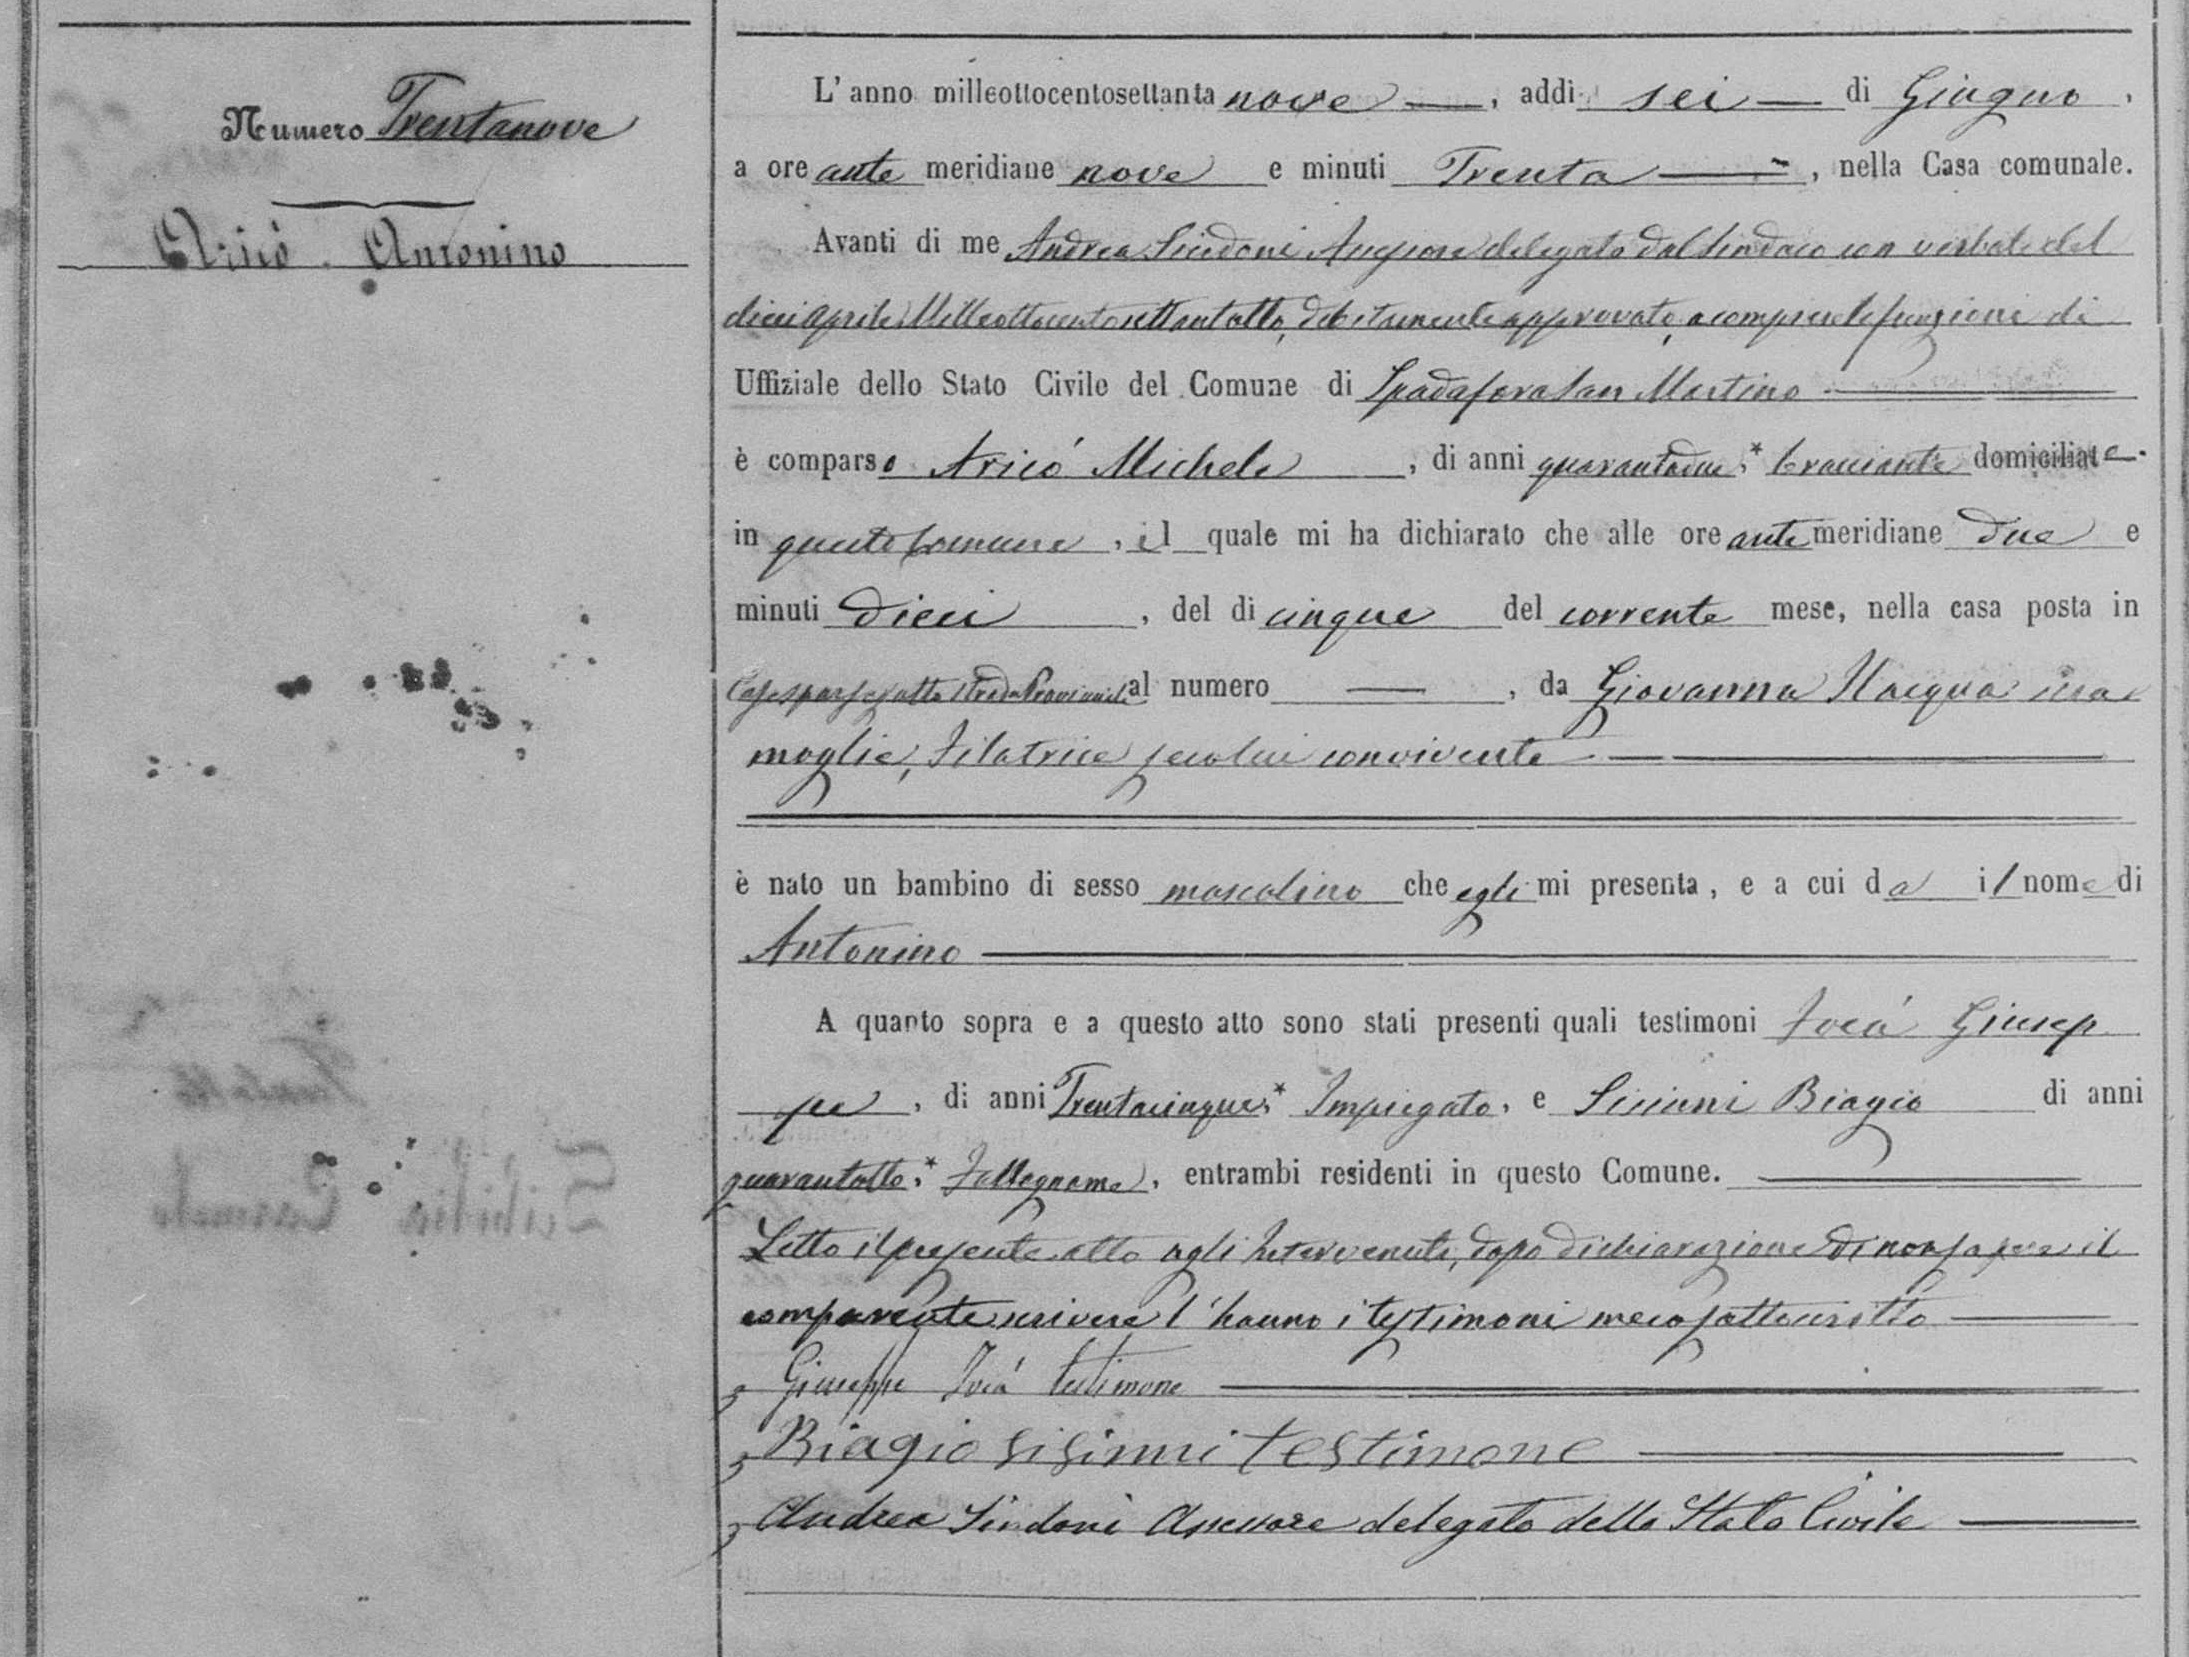 Numero Trentanove
Aricò Antonino
L'anno milleottocentosettanta nove, addi sei di Giugno,
a ore ante meridiane nove e minuti Trenta, nella Casa comunale.
Avanti di me Andrea Sindoni Assessore delegato dal Sindaco con verbale del
dieci Aprile Milleottocentosettantotto, debitamente approvato, a compiere le funzioni di
Uffiziale dello Stato Civile del Comune di Spadafora San Martino
è comparso Aricó Michele, di anni quarantadue,* bracciante domiciliato
in questo Comune, il quale mi ha dichiarato che alle ore ante meridiane due e
minuti dieci, del di cinque del corrente mese, nella casa posta in
Case sparse sotto Strada Provinciale al numero —, da Giovanna Nacqua sua
moglie, Filatrice secolui convivente
è nato un bambino di sesso mascolino che egli mi presenta, e a cui da il nome di
Antonino
A quanto sopra e a questo atto sono stati presenti quali testimoni Giusep
pe, di anni Trentacinque,* Impiegato, e Sisinni Biagio di anni
quarantotto,* Fallegname, entrambi residenti in questo Comune.
Letto il presente atto agli intervenuti, dopo dichiarazione di non sapere il
comparente scrivere l'hanno i testimoni meco sottoscritto
Giuseppe testimone
Biagio sisinni testimone
Andrea Sindoni Assessore delegato dello Stato Civile